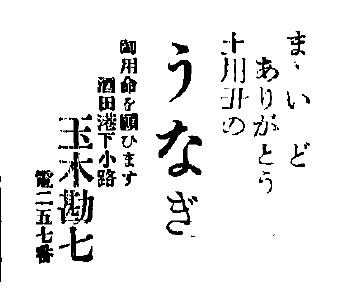 まいど
ありがとう
土用丑の
うなぎ
御用命を願ひます
酒田港下小路
玉木勘七
電二五七番